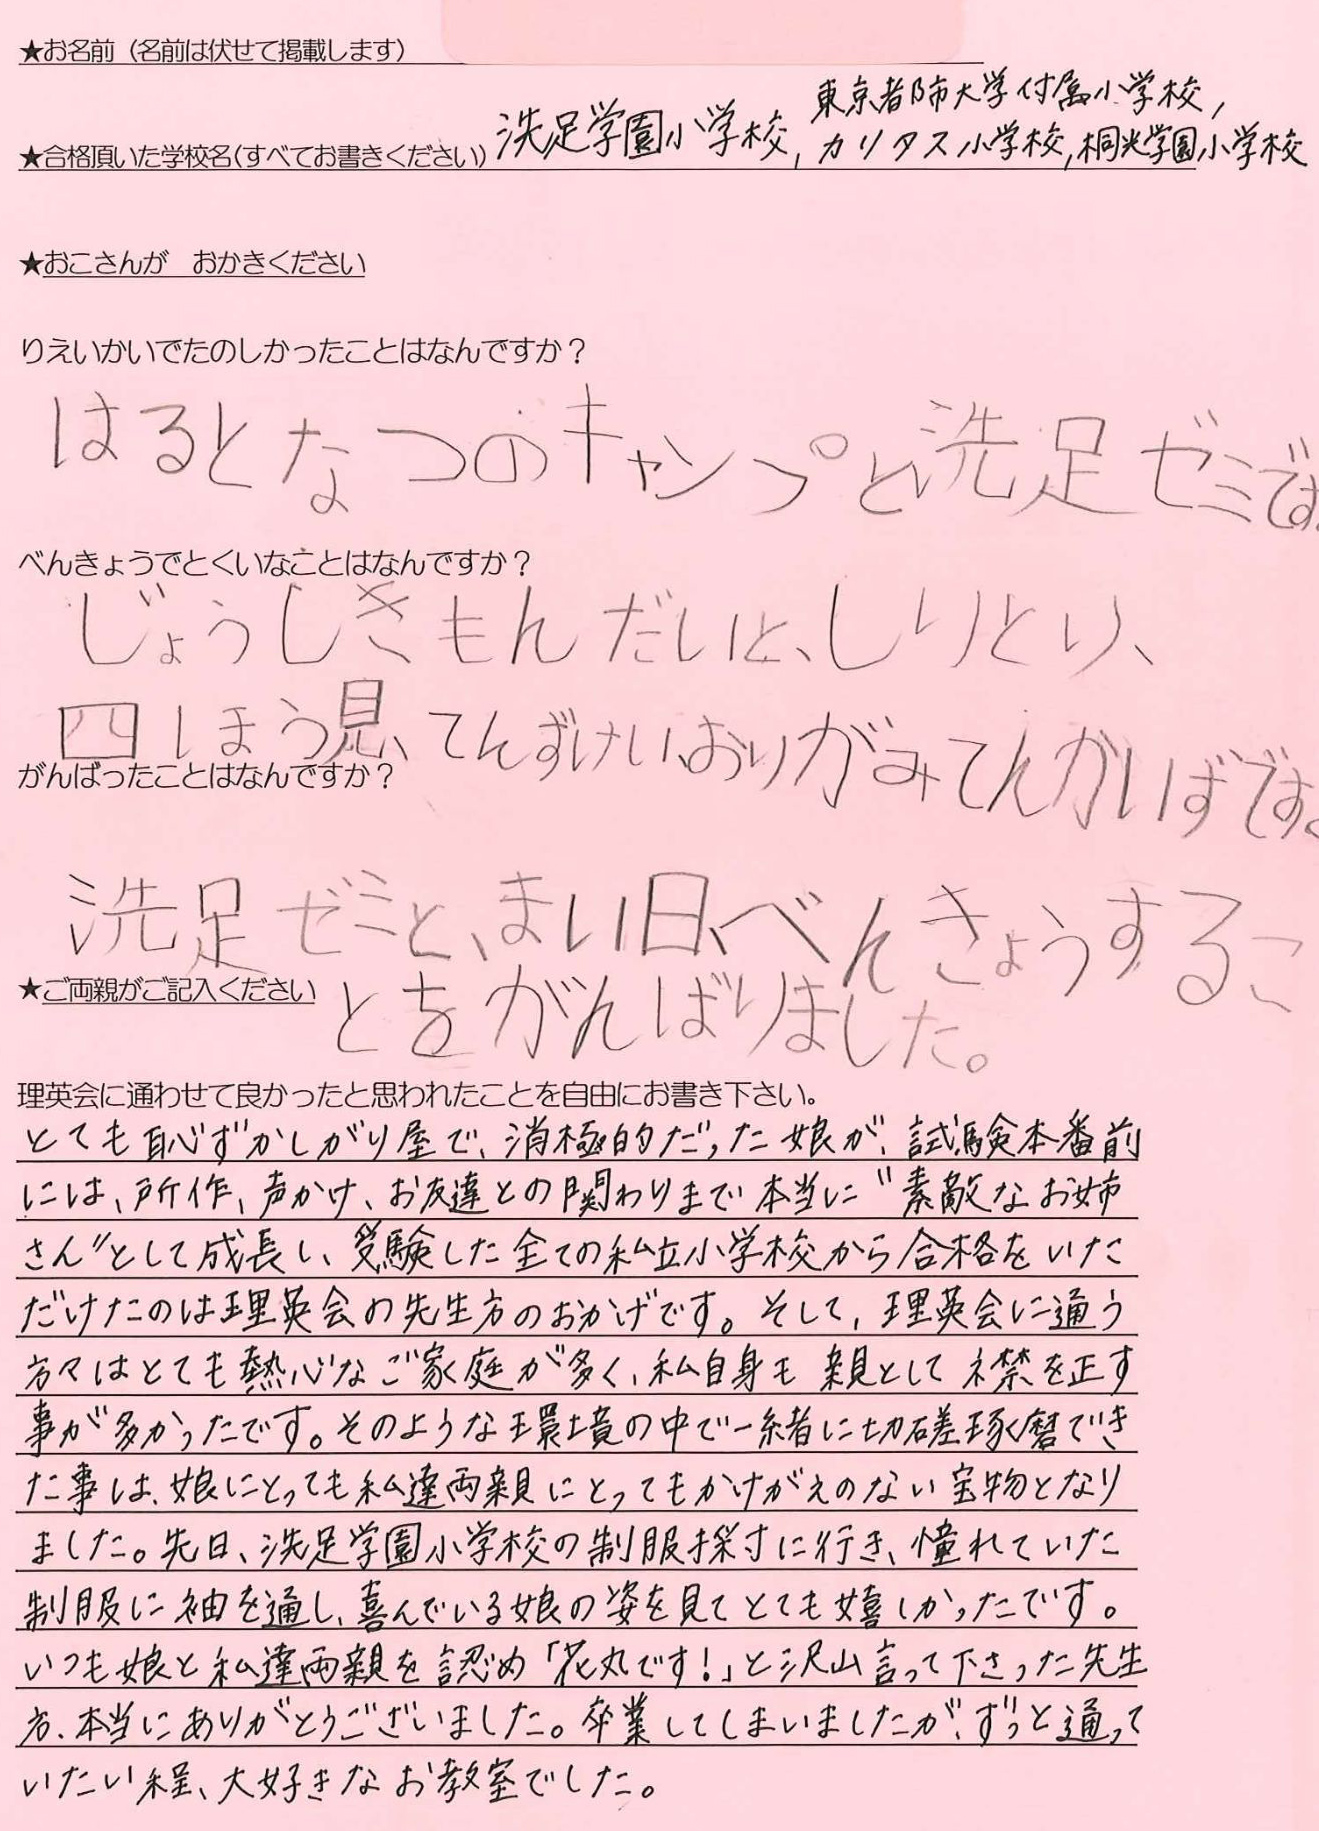 ★お名前（名前は伏せて掲載します）
東京都市大学付属小学校,
★合格頂いた学校名（すべてお書きください） 洗足学園小学校, カリタス小学校, 桐光学園小学校
★おこさんが　おかきください
りえいかいでたのしかったことはなんですか？
はるとなつのキャンプと洗足ゼミです。
べんきょうでとくいなことはなんですか？
じょうしきもんだいと、しりとり、
四ほう見、てんずけい、おりがみてんかいずです。
がんばったことはなんですか？
洗足ゼミと、まい日、べんきょうするこ
とをがんばりました。
★ご両親がご記入ください
理英会に通わせて良かったと思われたことを自由にお書き下さい。
とても恥ずかしがり屋で、消極的だった娘が、試験本番前
には、所作、声かけ、お友達との関わりまで本当に"素敵なお姉
さん"として成長し、受験した全ての私立小学校から合格をいた
だけたのは理英会の先生方のおかげです。そして、理英会に通う
方々はとても熱心なご家庭が多く、私自身も親として襟を正す
事が多かったです。そのような環境の中で一緒に切磋琢磨でき
た事は、娘にとっても私達両親にとってもかけがえのない宝物となり
ました。先日、洗足学園小学校の制服採寸に行き、憧れていた
制服に袖を通し、喜んでいる娘の姿を見てとても嬉しかったです。
いつも娘と私達両親を認め「花丸です！」と沢山言って下さった先生
方、本当にありがとうございました。卒業してしまいましたが、ずっと通って
いたい程、大好きなお教室でした。